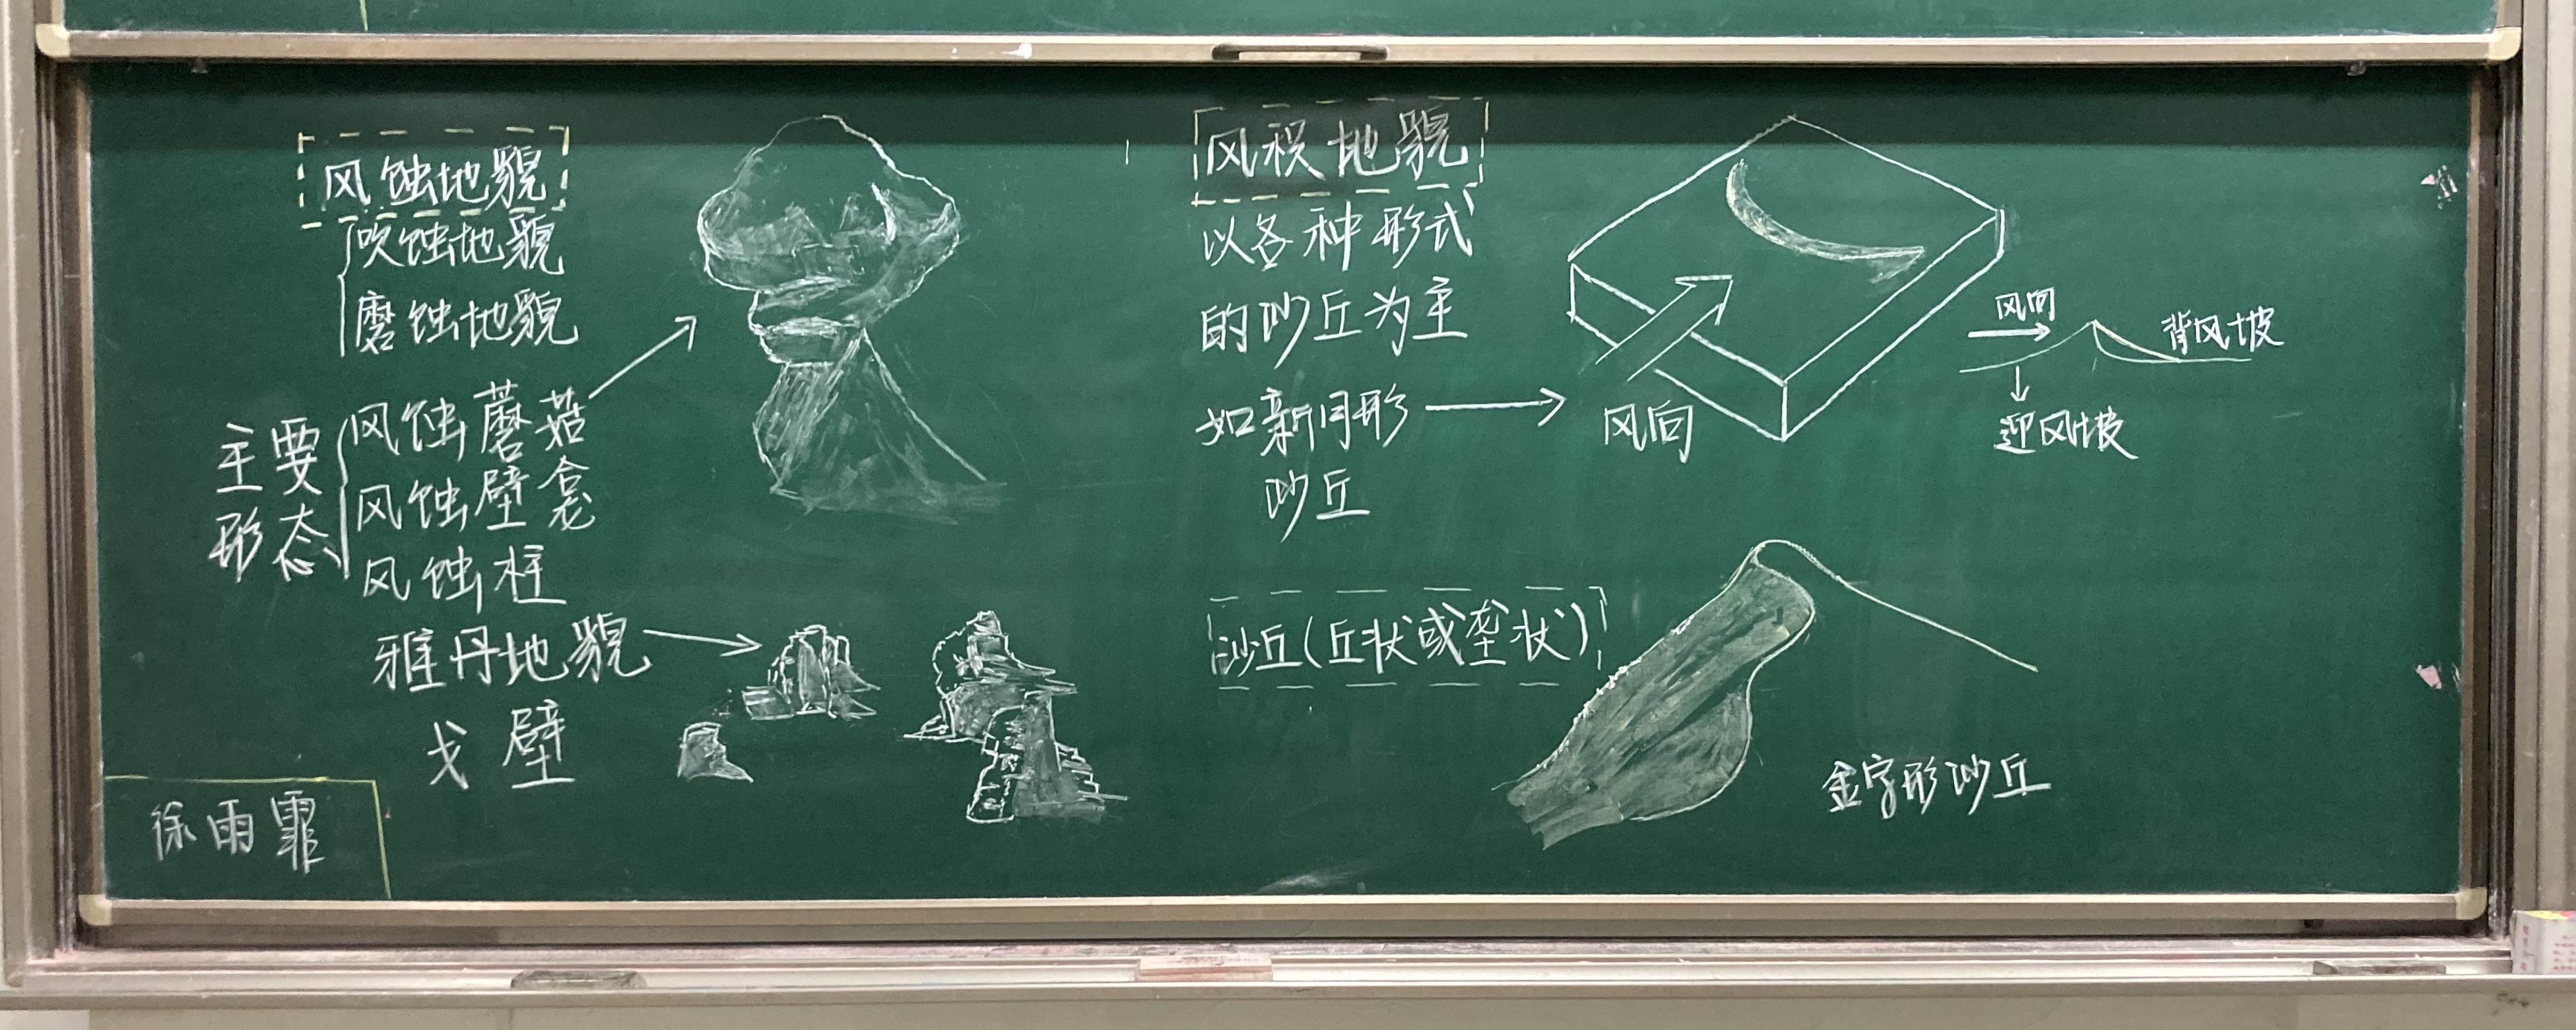 风蚀地貌
吹蚀地貌
磨蚀地貌
主要
形态
风蚀蘑菇
风蚀壁龛
风蚀柱
雅丹地貌
戈壁
徐雨霏
风积地貌
以各种形式
的沙丘为主
如新月形
沙丘
风向
风向
背风坡
迎风坡
沙丘(丘状或垄状)
金字形沙丘